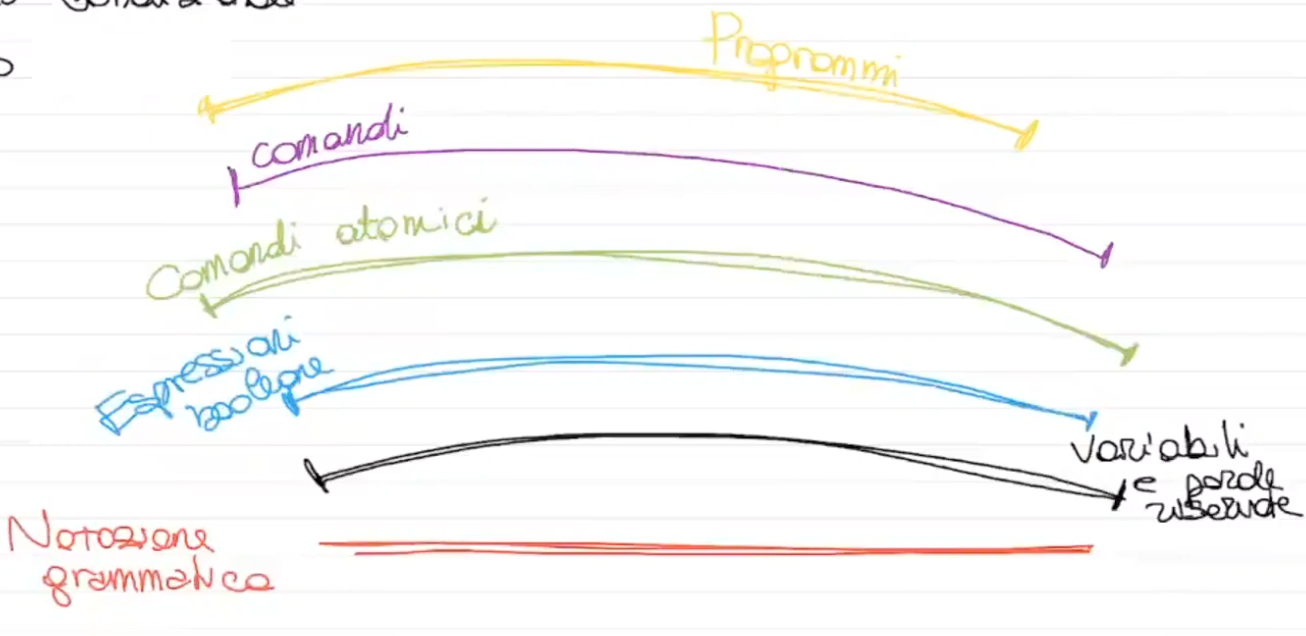 Programmi
comandi
Comandi atomici
Espressioni
booleane
variabili
e parole
riservate
Notazione
grammatica